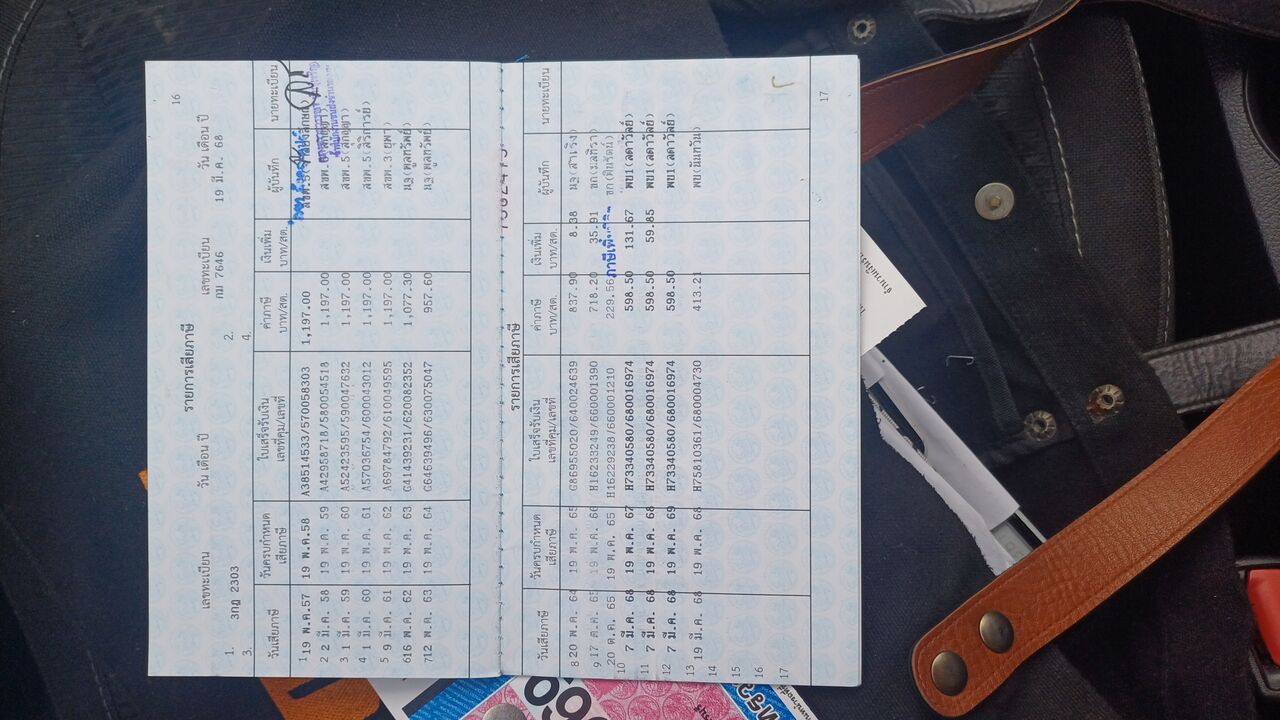 16
รายการเสียภาษี
เลขทะเบียน วัน เดือน ปี เลขทะเบียน วัน เดือน ปี
1. 3กฎ 2303 2. กม 7646 19 มี.ค. 68
3. 4.
วันเสียภาษี วันครบกำหนดเสียภาษี ใบเสร็จรับเงิน เลขที่คุม/เลขที่ ค่าภาษี บาท/สต. เงินเพิ่ม บาท/สต. ผู้บันทึก นายทะเบียน
1 19 พ.ค.57 19 พ.ค.58 A38514533/570058303 1,197.00
2 2 มี.ค. 58 19 พ.ค. 59 A42958718/580054518 1,197.00
3 1 มี.ค. 59 19 พ.ค. 60 A52423595/590047632 1,197.00 สขพ.5(ลักขณา)
4 1 มี.ค. 60 19 พ.ค. 61 A57036754/600043012 1,197.00 สขพ.5(ศิริภารย์)
5 9 มี.ค. 61 19 พ.ค. 62 A69784792/610049595 1,197.00 สขพ.3(ยุพา)
6 16 พ.ค. 62 19 พ.ค. 63 G41439231/620082352 1,077.30 นฐ(พูลทวีพย์)
7 12 พ.ค. 63 19 พ.ค. 64 G64639496/630075047 957.60 นฐ(พูลทวีพย์)
รายการเสียภาษี
วันเสียภาษี วันครบกำหนดเสียภาษี ใบเสร็จรับเงิน เลขที่คุม/เลขที่ ค่าภาษี บาท/สต. เงินเพิ่ม บาท/สต. ผู้บันทึก นายทะเบียน
8 20 พ.ค. 64 19 พ.ค. 65 G86955020/640024639 837.90 8.38 นฐ(สำเริง)
9 17 ต.ค. 65 19 พ.ค. 66 H16233249/660001390 718.20 35.91
20 ต.ค. 65 19 พ.ค. 65 H16229238/660001210 229.56
10 7 มี.ค. 68 19 พ.ค. 67 H73340580/680016974 598.50 131.67 พข1(ลดาวัลย์)
11 7 มี.ค. 68 19 พ.ค. 68 H73340580/680016974 598.50 59.85 พข1(ลดาวัลย์)
12 7 มี.ค. 68 19 พ.ค. 69 H73340580/680016974 598.50 พข1(ลดาวัลย์)
13 19 มี.ค. 68 19 พ.ค. 68 H75810361/680004730 413.21 พข(นันทวัน)
14
15
16
17
17